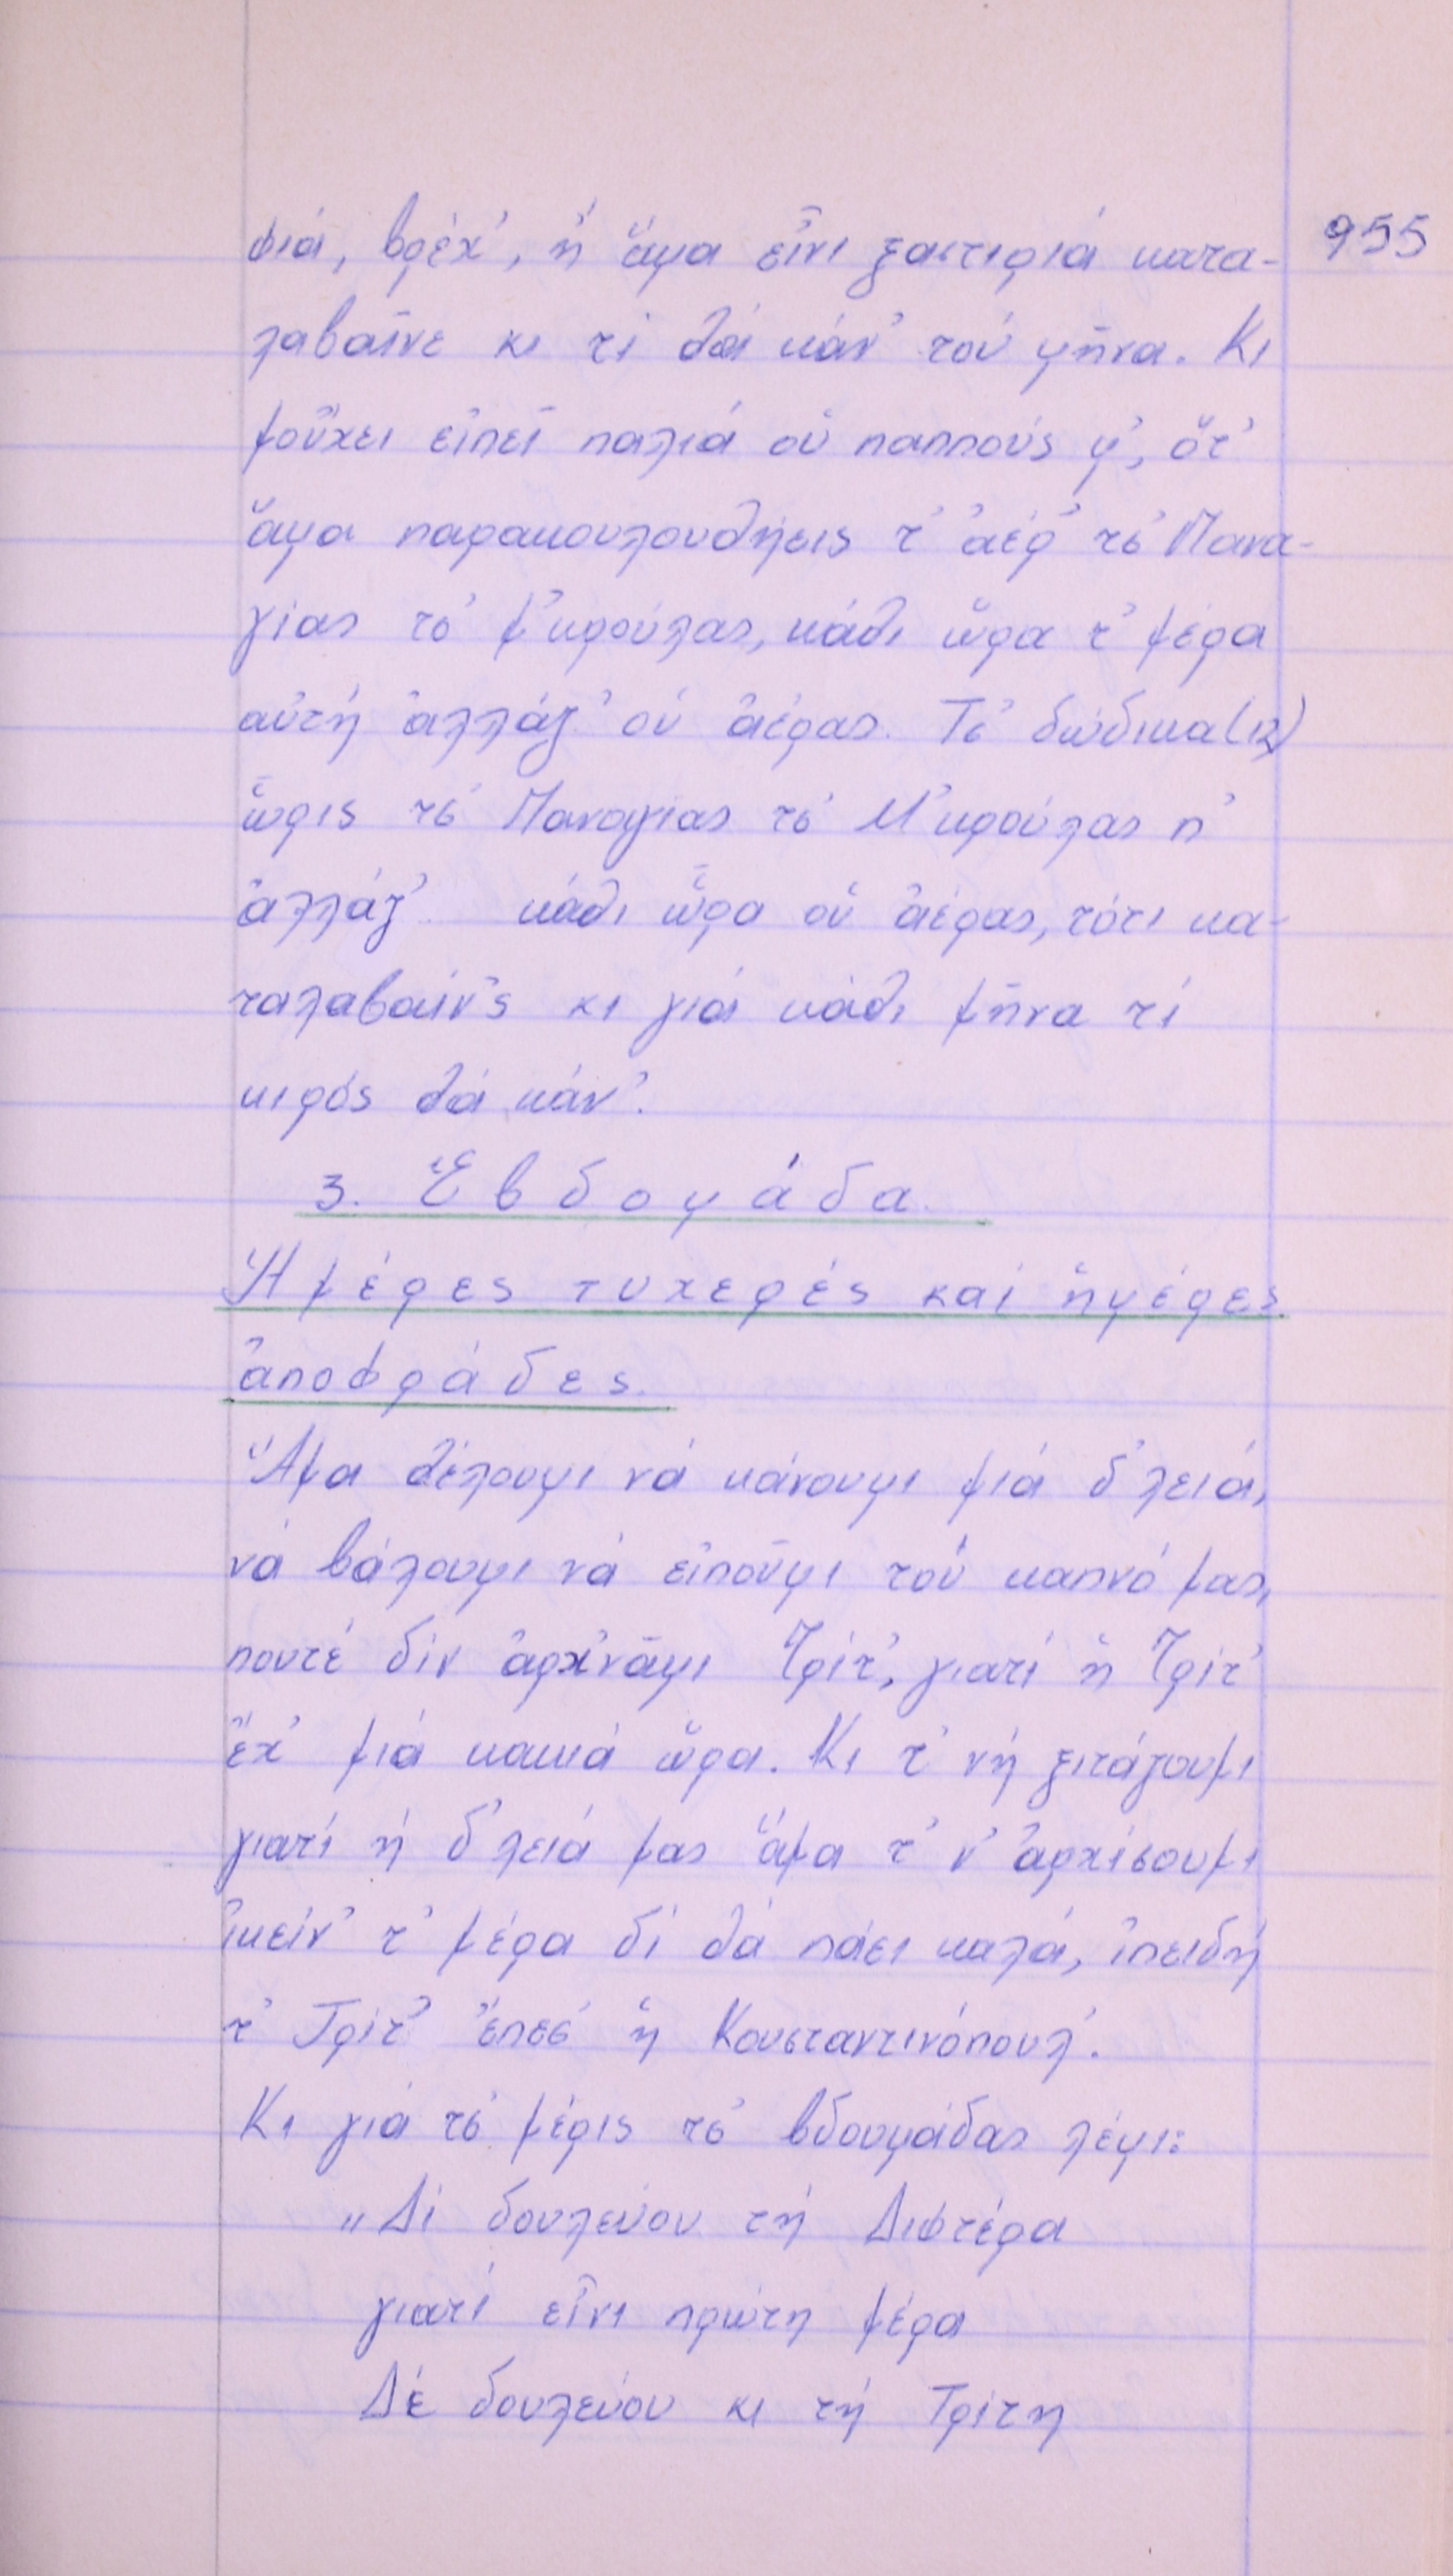 φιά, βρέχ', ἤ ἅμα εἶνι ξαστιριά κατα- 955
λαβαῖνε κι τί θά κάν' τού μῆνα. Κι
μοὔχει εἰπεῖ παλιά οὑ παπποὺς μ', ὅτ'
ἅμα παρακουλουθήσεις τ' ἀέρ' τσ' Πανα-
γίας τσ' Μ'κρούλας, κάθι ὥρα τ' μέρα
αὐτή ἀλλάζ' οὑ ἀέρας. Τσ' δώδικα (12)
ὧρις τσ' Παναγίας τσ' Μ'κρούλας π'
ἀλλάζ' κάθι ὥρα οὑ ἀέρας, τότι κα-
ταλαβαίν'ς κι γιά κάθι μῆνα τί
κιρός θά κάν'.
3. Ἑβδομάδα.
Ἡμέρες τυχερές καί ἡμέρες
ἀποφράδες.
Ἅμα θέλουμι νά κάνουμι μιά δ'λειά,
νά βάλουμι νά εἰποῦμι τού καπνό μας,
πουτέ δίν ἀρχ'νᾶμι Τρίτ', γιατί ἡ Τρίτ'
ἔχ' μιά κακιά ὥρα. Κι τ' νή ξιτάζουμι
γιατί ἡ δ'λειά μας ἅμα τ' ν' ἀρχίσουμι
ἰκείν' τ' μέρα δέ θά πάει καλά, ἰπειδή
τ' Τρίτ' ἔπεσ' ἡ Κουσταντινόπουλ'.
Κι γιά τσ' μέρις τσ' βδουμάδας λέμι:
"Δέ δουλεύου τή Διφτέρα
γιατί εἶνι πρώτη μέρα
Δέ δουλεύου κι τή Τρίτη